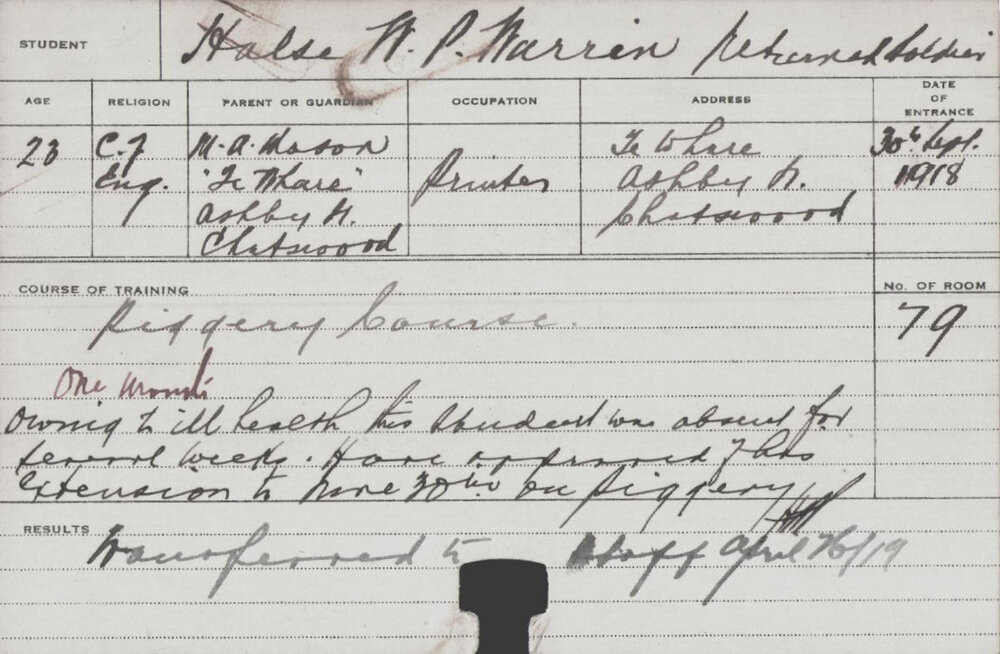 STUDENT Halse W. P. Warren Returned Soldier
AGE RELIGION PARENT OR GUARDIAN OCCUPATION ADDRESS DATE OF ENTRANCE
23 C. of M. A. Mason Te Whare 30th Sept.
Eng. "Te Whare" Printer Ashby St. 1918
Ashby St. Chatswood
Chatswood
COURSE OF TRAINING No. OF ROOM
Piggery Course. 79
One Month
Owing to ill health this student was absent for
several weeks. Have approved of his
extension to Nov 30th on piggery
RESULTS
Transferred to Staff April 26/19